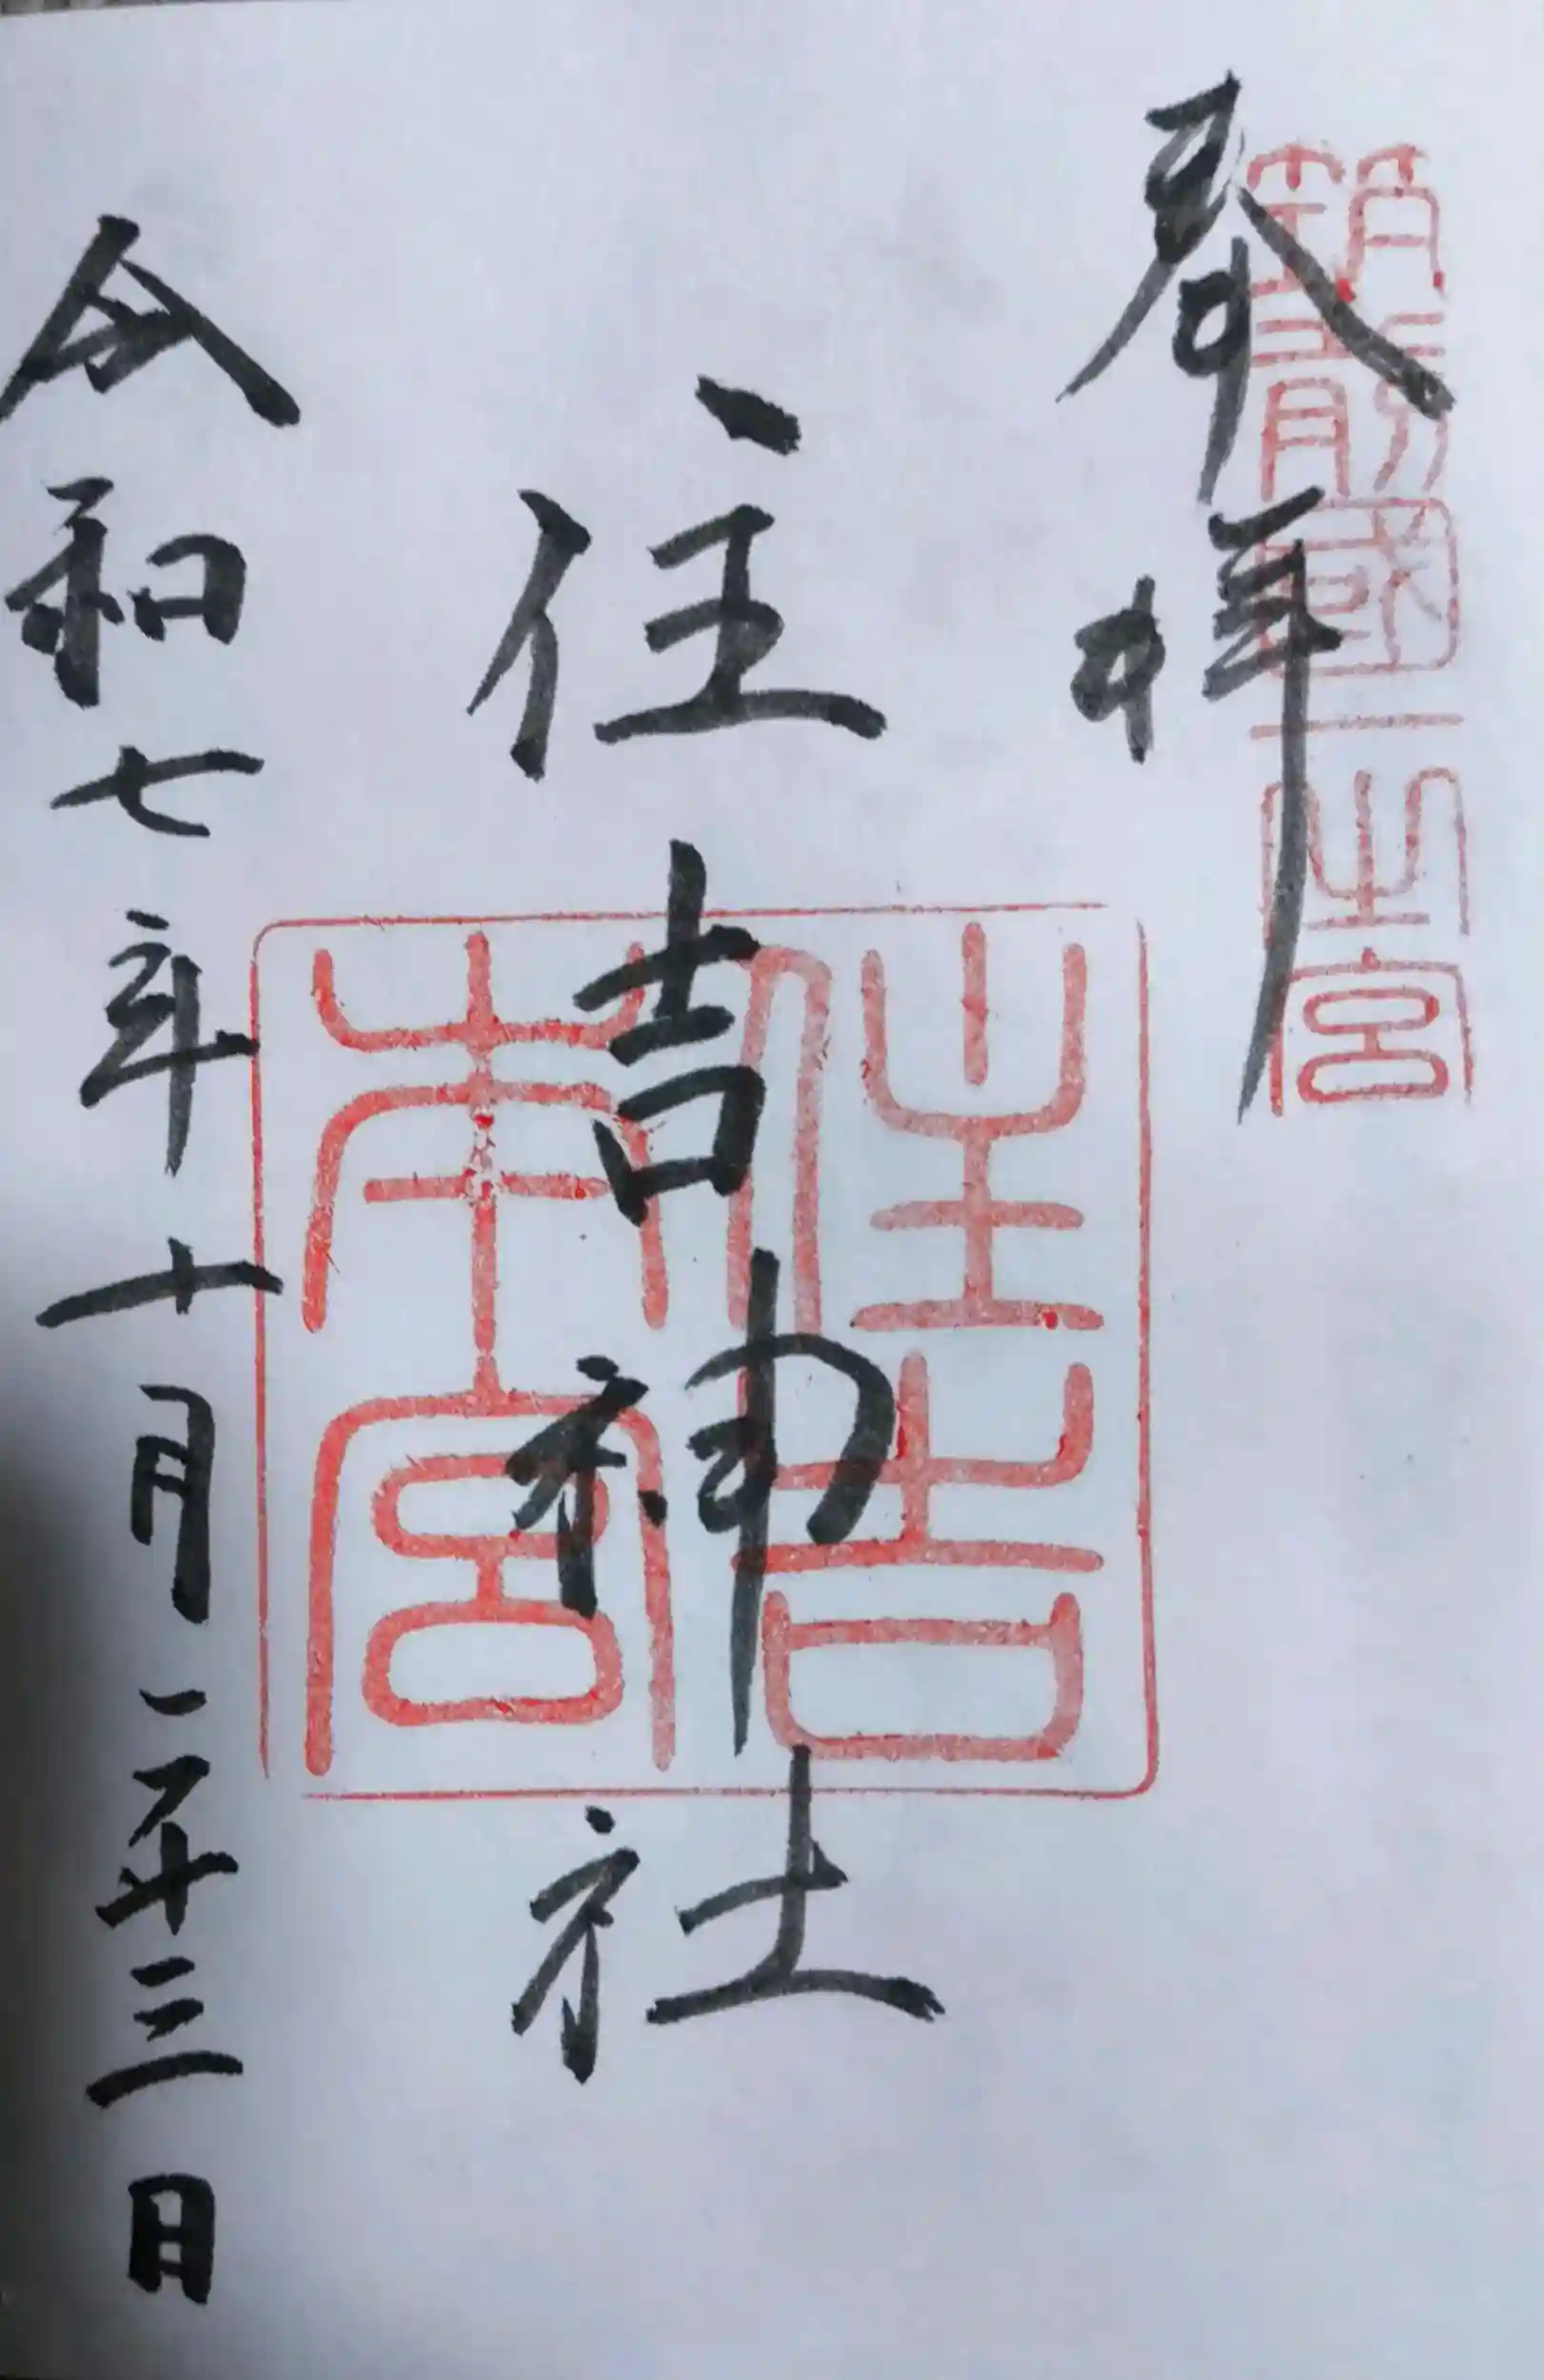 筑前國一之宮
奉拝
住吉神社
住吉
本宮
令和七年十月二十三日